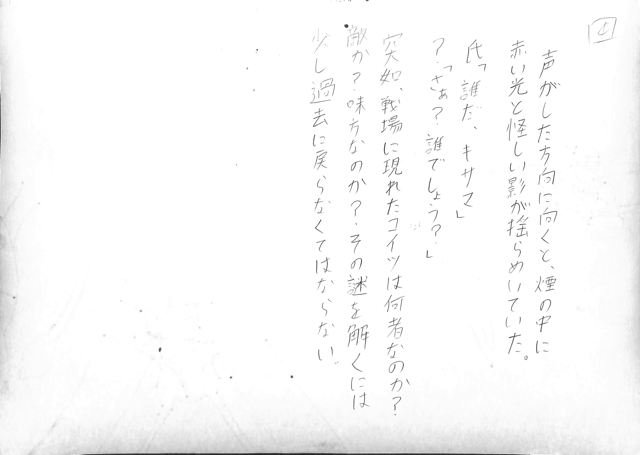 声がした方向に向くと、煙の中に
赤い光と怪しい影が揺らめいていた。
氏「誰だ、キサマ」
？「さぁ？誰でしょう？」
突如、戦場に現れたコイツは何者なのか？
敵か？味方なのか？その謎を解くには
少し過去に戻らなくてはならない。